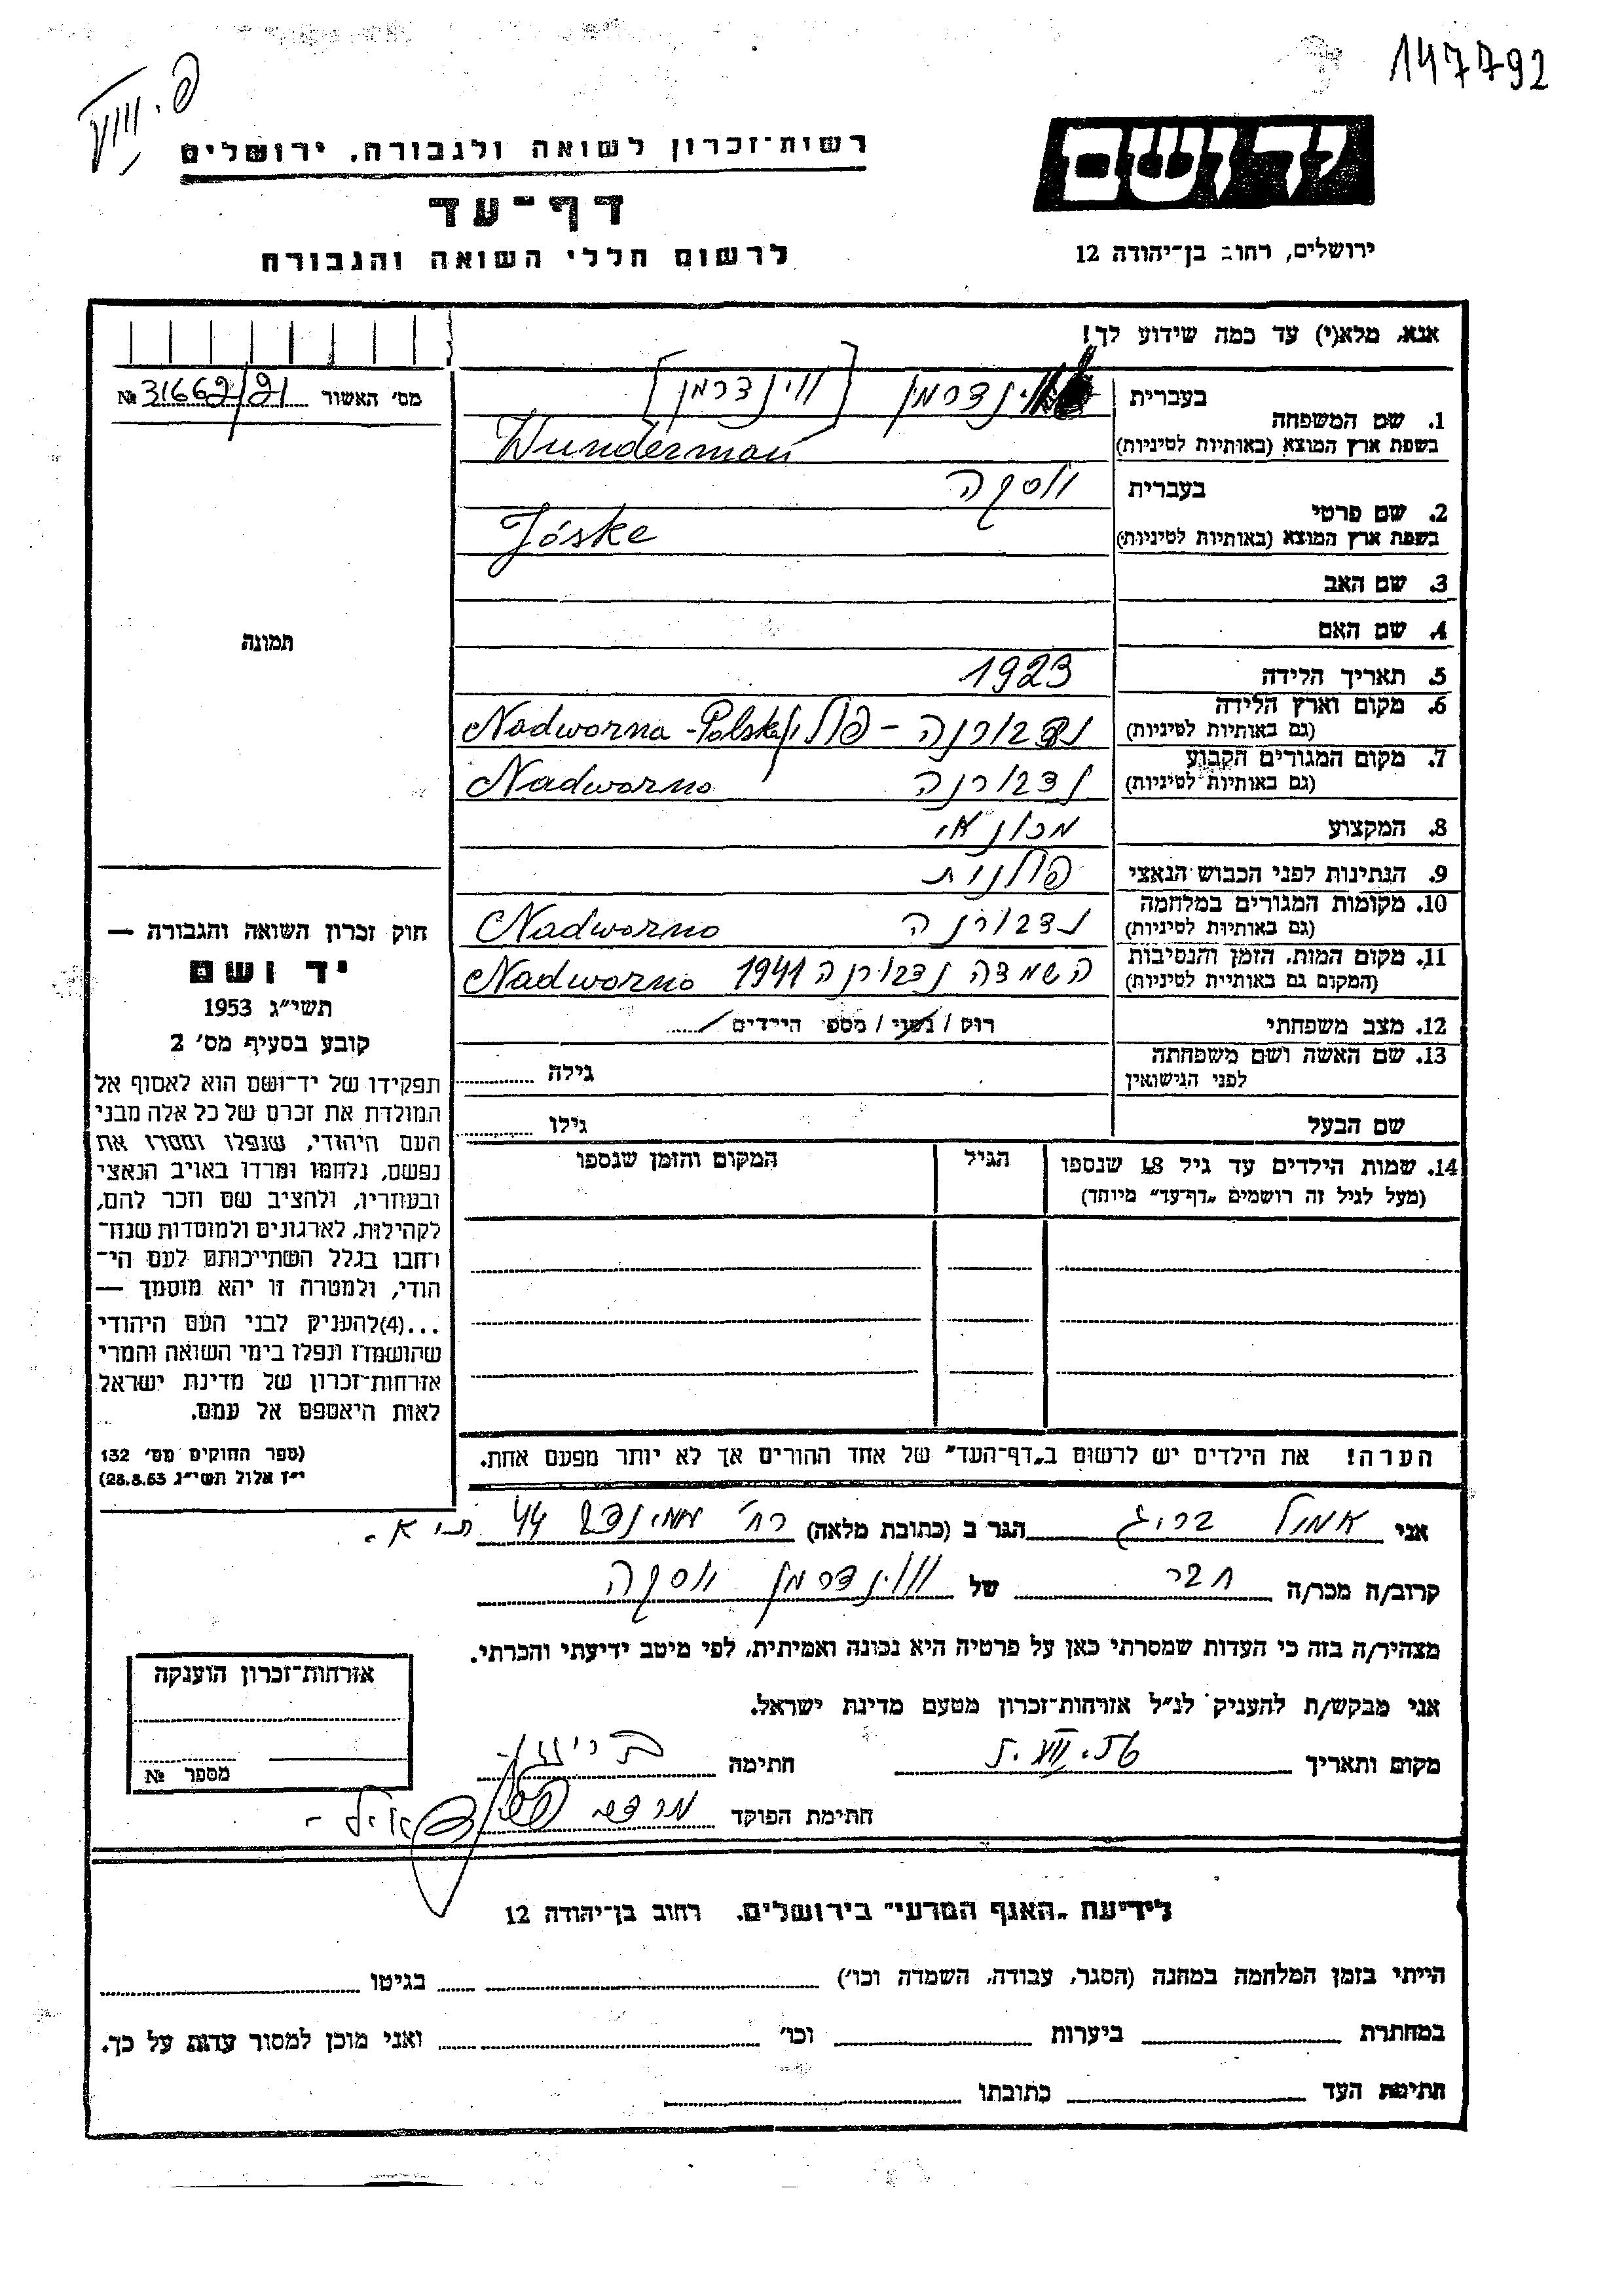 147792
פ. VIII
יד ושם
רשות־זכרון לשואה ולגבורה, ירושלים
דף־עד
לרשום חללי השואה והגבורה
ירושלים, רחוב בן־יהודה 12
אנא, מלא(י) עד כמה שידוע לך!
מס' האשור № 31662/91
1. שם המשפחה
בעברית ווינדרמן [ווינדרמן]
בשפת ארץ המוצא (באותיות לטיניות) Wunderman
2. שם פרטי
בעברית יוסקה
בשפת ארץ המוצא (באותיות לטיניות) Jóske
3. שם האב
4. שם האם
תמונה
5. תאריך הלידה 1923
6. מקום וארץ הלידה
(גם באותיות לטיניות) נדבורנה - פולין Nadworna - Polska
7. מקום המגורים הקבוע
(גם באותיות לטיניות) נדבורנה Nadworno
8. המקצוע מכונאי
9. הנתינות לפני הכבוש הנאצי פולנית
10. מקומות המגורים במלחמה
(גם באותיות לטיניות) נדבורנה Nadworno
11. מקום המות, הזמן והנסיבות
(המקום גם באותיות לטיניות) השמדה נדבורנה 1941 Nadworno
12. מצב משפחתי רוק / נשוי / מספר הילדים
13. שם האשה ושם משפחתה
לפני הנישואין גילה
שם הבעל גילו
14. שמות הילדים עד גיל 18 שנספו
(מעל לגיל זה רושמים "דף־עד" מיוחד)
הגיל
המקום והזמן שנספו
חוק זכרון השואה והגבורה —
יד ושם
תשי"ג 1953
קובע בסעיף מס' 2
תפקידו של יד־ושם הוא לאסוף אל
המולדת את זכרם של כל אלה מבני
העם היהודי, שנפלו ומסרו את
נפשם, נלחמו ומרדו באויב הנאצי
ובעוזריו, ולהציב שם וזכר להם,
לקהילות, לארגונים ולמוסדות שנח־
רחבו בגלל השתייכותם לעם הי־
הודי, ולמטרה זו יהא מוסמך —
...(4)להעניק לבני העם היהודי
שהושמדו ונפלו בימי השואה והמרי
אזרחות־זכרון של מדינת ישראל
לאות היאספם אל עמם.
(ספר החוקים מס' 132
י"ז אלול תשי"ג 28.8.53)
הערה! את הילדים יש לרשום ב"דף־העד" של אחד ההורים אך לא יותר מפעם אחת.
אני אמיל בריג הגר ב (כתובת מלאה) רח' 44 ת"א.
קרוב/ה מכר/ה חבר של ווינדרמן יוסקה
מצהיר/ה בזה כי העדות שמסרתי כאן על פרטיה היא נכונה ואמיתית, לפי מיטב ידיעתי והכרתי.
אני מבקש/ת להעניק לנ"ל אזרחות־זכרון מטעם מדינת ישראל.
מקום ותאריך חתימה
חתימת הפוקד
אזרחות־זכרון הוענקה
מספר №
לידיעת "האגף המדעי" בירושלים, רחוב בן־יהודה 12
הייתי בזמן המלחמה במחנה (הסגר, עבודה, השמדה וכו') בגיטו
במחתרת ביערות וכו' ואני מוכן למסור עדות על כך.
חתימת העד כתובתו